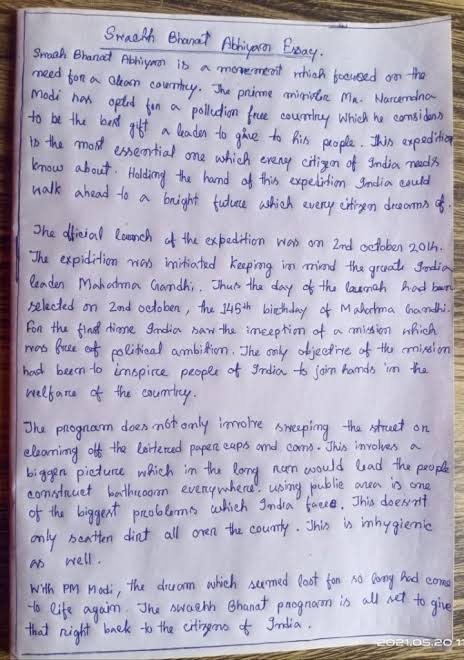 Swachh Bharat Abhiyan Essay.
Swachh Bharat Abhiyan is a movement which focused on the
need for a clean country. The prime minister Mr. Narendra
Modi has opted for a pollution free country which he considers
to be the best gift a leader to give to his people. This expedition
is the most essential one which every citizen of India needs
know about. Holding the hand of this expedition India could
walk ahead to a bright future which every citizen dreams of.
The official launch of the expedition was on 2nd october 2014.
The expidition was initiated keeping in mind the greate India
leader Mahatma Gandhi. Thus the day of the launch had been
selected on 2nd october, the 145th birthday of Mahatma Gandhi.
For the first time India saw the inception of a mission which
was free of political ambition. The only objective of the mission
had been to inspire people of India to join hands in the
welfare of the country.
The program does not only involve sweeping the street or
cleaning off the loitered paper caps and cans. This involves a
bigger picture which in the long run would lead the people
construct bathroom everywhere. using public area is one
of the biggest problems which India faces. This doesn't
only scatter dirt all over the county. This is inhygienic
as well.
With PM Modi, the dream which seemed lost for so long had come
to life again. The swachh Bharat program is all set to give
that right back to the citizens of India.
2021.05.20 1